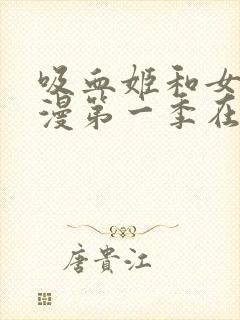 吸血姬和女
漫第一季在
唐貴江